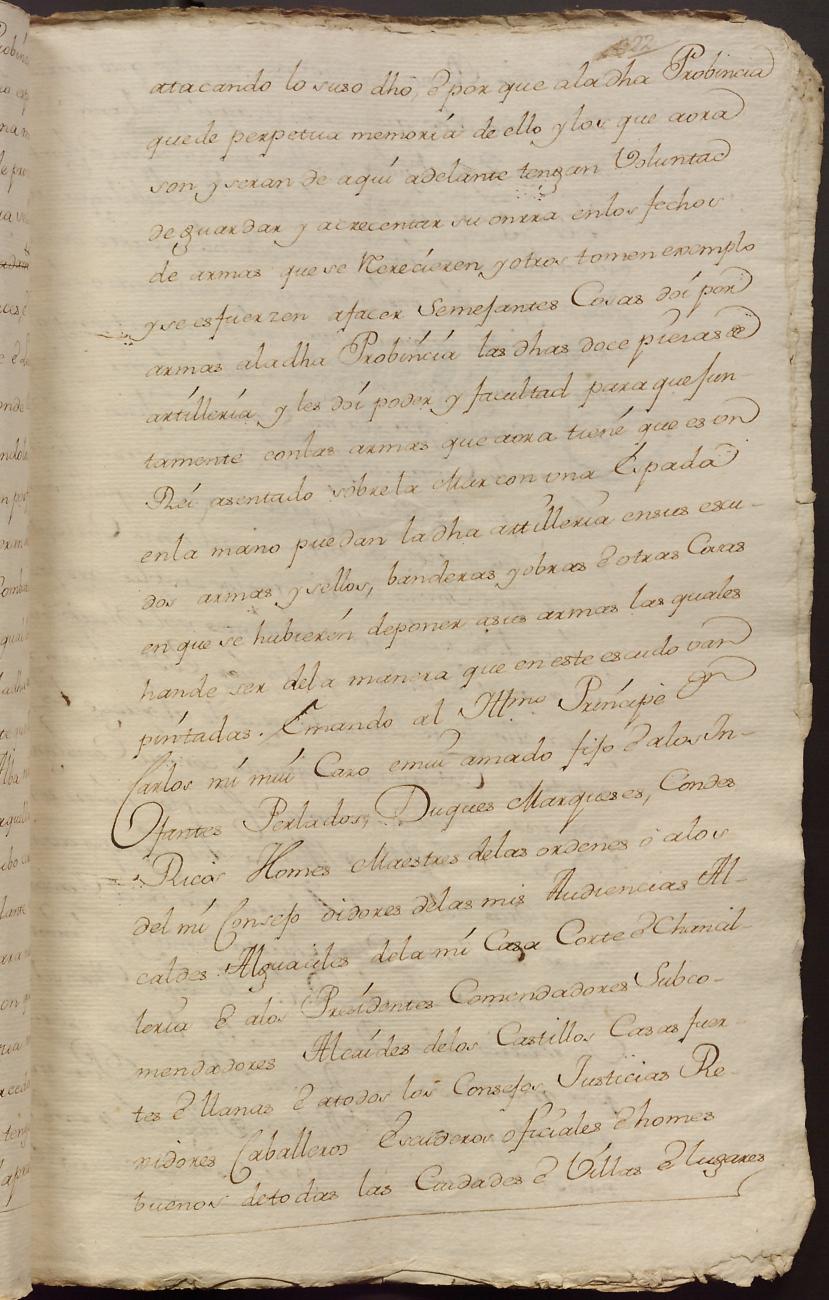 atacando lo suso dhô, è por que ala dha Probincia
quede perpetua memoria de ello y los que aora
son y seran de aquí adelante tengan Voluntad
de guardar y acrecentar su onrra en los fechos
de armas que se Nerecieren y otros tomen exemplo
y se esfuerzen afacer Semejantes Cosas doi por
armas ala dha Probincia las dhas doce piezas de
artilleria y les doi poder y facultad para que jun-
tamente con las armas que aora tiene que es un
Rei asentado sobre la Mar con una Espada
en la mano puedan la dha artilleria en sus escu-
dos armas y sellos, banderas y obras è otras Cosas
en que se hubieren de poner asus armas las quales
han de ser dela manera que en este escudo van
pintadas. Emando al Illmo Príncipe Dn
Carlos mi mui Caro emui amado fijo è alos In-
fantes Perlados, Duques Marqueses, Condes
Ricos Homes Maestres delas ordenes è alos
del mi Consejo oidores delas mis Audiencias Al-
caldes Alguaciles dela mi Casa Corte è Chancil-
leria è alos Presidentes Comendadores Subco-
mendadores Alcaides delos Castillos Casas fuer-
tes è llanas è atodos los Consejos Justicias Re-
xidores Caballeros Escuderos oficiales è homes
buenos de todas las Ciudades è Villas è lugares